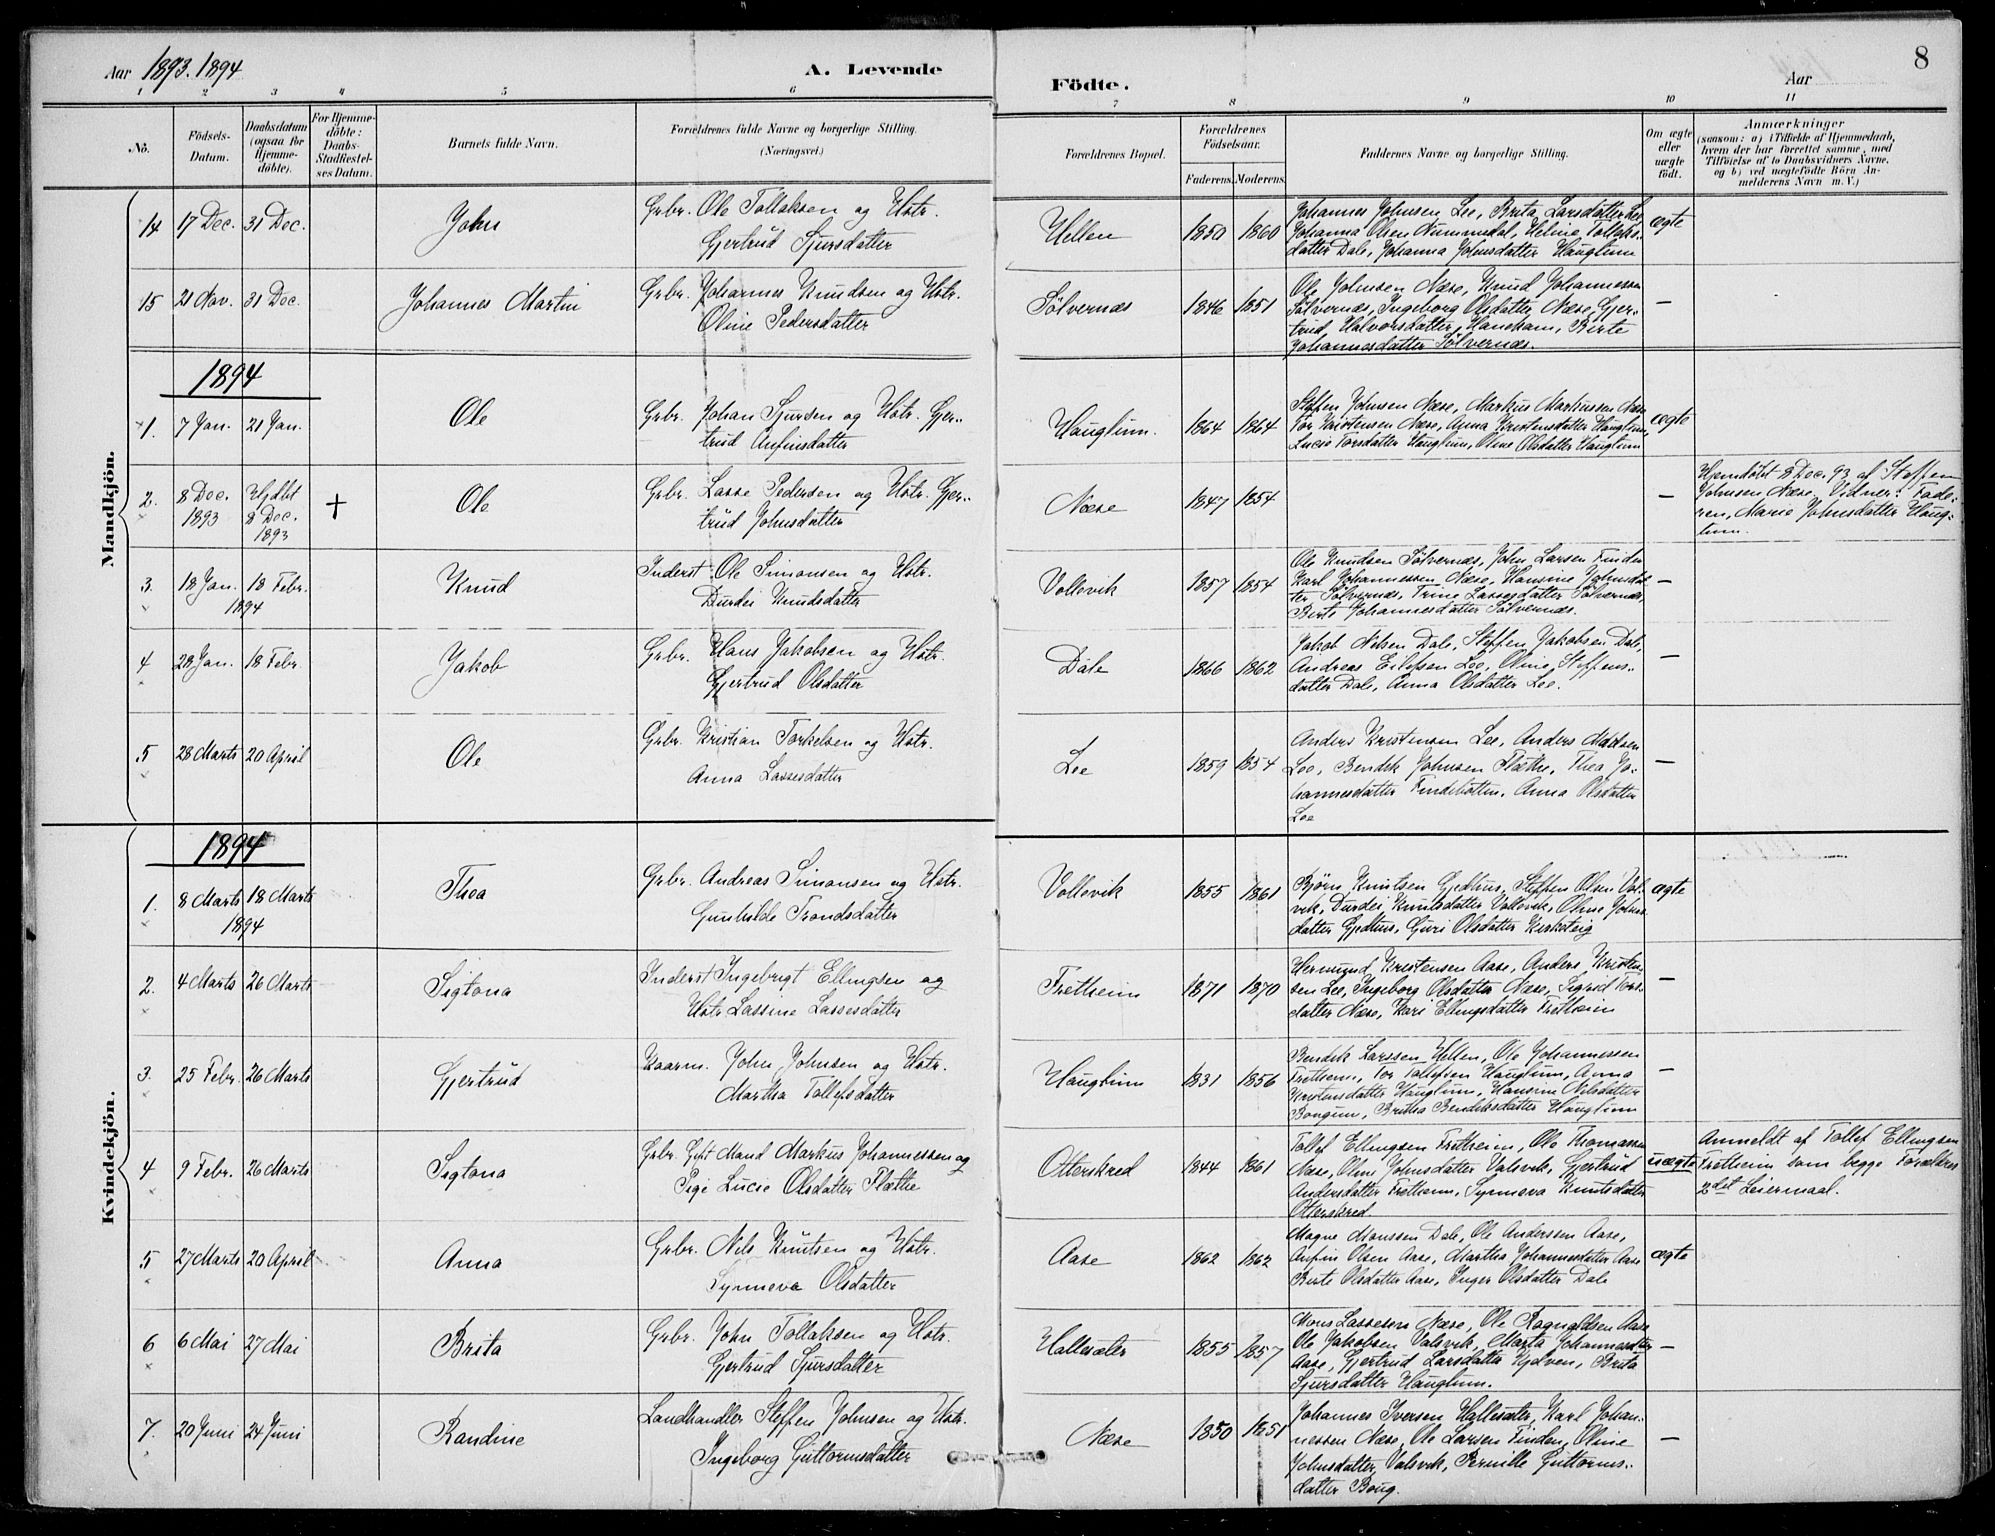 Aar 1893. 1894
A. Levende
Födte.
Aar
8
1 2 3 4 5 6 7 8 9 10 11
No.
Födsels-
Datum.
Daabsdatum
(ogsaa for
Hjemme-
döbte).
For Hjemme-
döbte:
Daabs-
Stadfæstel-
ses Datum.
Barnets fulde Navn.
Forældrenes fulde Navne og borgerlige Stilling.
(Næringsvei.)
Forældrenes Bopæl.
Forældrenes
Födselsaar.
Faderens. Moderens.
Faddernes Navne og borgerlige Stilling.
Om ægte
eller
uægte
födt.
Anmærkninger
(saasom: a) i Tilfælde af Hjemmedaab,
hvem der har forrettet samme, med
Tilföielse af to Daabsvidners Navne,
og b) ved uægtefödte Börn An-
melderens Navn m. V.)
Mandkjön.
14 17 Dec. 31 Dec. John
Grbr. Ole Tollaksen og Hstr.
Gjertrud Sjursdatter
Hellen 1850 1860
Johannes Johnsen Lee, Brita Larsdatter Lee,
Johanna Olsen Nummedal, Helene Tollaks-
datter Dale, Johanna Johnsdatter Hauglum
ægte
15 21 Nov. 31 Dec. Johannes Martin
Grbr. Johannes Knudsen og Hstr.
Oline Pedersdatter
Sölvernæs 1846 1851
Ole Johnsen Næse, Knud Johannessen
Sölvernæs, Ingeborg Olsdatter Næse, Gjer-
trud Halvorsdatter Hanekam, Birte
Johannesdatter Sölvernæs.
—
1894
1. 7 Jan. 21 Jan. Ole
Grbr. Johan Sjursen og Hstr. Gjer-
trud Anfinsdatter
Hauglum. 1864 1864
Steffen Johnsen Næse, Markus Markussen Næse
Tor Kristensen Næse, Anna Kristensdatter Hauglum,
Lucie Torsdatter Hauglum, Oline Olsdatter Hauglum
ægte
2. 8 Dec. Hjdbt
1893 8 Dec.
1893
+ Ole
Grbr. Lasse Pedersen og Hstr. Gjer-
trud Johnsdatter
Næse 1847 1854
—
Hjemdöbt 8 Dec. 93 af Steffen
Johnsen Næse. Vidner: Fade-
ren, Marie Johnsdatter Haug-
lum.
3 18 Jan. 18 Febr.
1894
Knud
Inderst Ole Simonsen og Hstr.
Durdei Knudsdatter
Vollevik 1857 1854
Ole Knudsen Sölvernæs, John Larsen Finden
Karl Johannessen Næse, Hansine Johnsdat-
ter Sölvernæs, Trine Lassesdatter Sölvernæs,
Birte Johannesdatter Sölvernæs.
—
4 28 Jan. 18 Febr. Jakob
Grbr. Hans Jakobsen og Hstr.
Gjertrud Olsdatter
Dale 1866 1862
Jakob Nilsen Dale, Steffen Jakobsen Dale,
Andreas Eilefsen Lee, Oline Steffens-
datter Dale, Anna Olsdatter Lee.
—
5 28 Marts 20 April Ole
Grbr. Kristian Torkelsen og Hstr.
Anna Lassesdatter
Lee 1859 1854
Anders Kristensen Lee, Anders Madsen
Lee, Bendik Johnsen Flæthe, Thea Jo-
hannesdatter Findebotten, Anna Olsdatter
Lee
—
Kvindekjön.
1894
1. 8 Marts 18 Marts
1894
Thea
Grbr. Andreas Simonsen og Hstr.
Gunhilde Trondsdatter
Vollevik 1855 1861
Björn Knutsen Gjedhus, Steffen Olsen Vol-
vik, Durdei Knutsdatter Vollevik, Oline Johns-
datter Gjedhus, Guri Olsdatter Kirketeig
ægte
2. 4 Marts 26 Marts Sigtona
Inderst Ingebrigt Ellingsen og
Hstr Lassine Lassesdatter
Fretheim 1871 1870
Hermund Kristensen Aase, Anders Kristen-
sen Lee, Ingeborg Olsdatter Næse, Sigrid Tors-
datter Næse, Kari Ellingsdatter Fretheim
—
3. 25 Febr. 26 Marts Gjertrud
Kaarm. John Johnsen og Hstr.
Martha Tollefsdatter
Hauglum 1831 1856
Bendik Larssen Hellen, Ole Johannessen
Fretheim, Tor Tollefsen Hauglum, Anna
Kristensdatter Hauglum, Hansine Nilsdatter
Bongum, Britha Bendiksdatter Hauglum
—
4 9 Febr. 26 Marts Sigtona
Grbr. Gift Mand Markus Johannessen og
Pige Lucie Olsdatter Flæthe
Otterskred 1844 1861
Tollef Ellingsen Fretheim, Ole Thomassen
Næse, Oline Johnsdatter Valsvik, Gjertrud
Andersdatter Fretheim, Synneva Knutsdatter
Otterskred
uægte
Anmeldt af Tollef Ellingsen
Fretheim som begge Forældres
2det Leiermaal.
5 27 Marts 20 April Anna
Grbr. Nils Knutsen og Hstr.
Synneva Olsdatter
Aase 1862 1862
Magne Monssen Dale, Ole Anderssen Aase,
Anfin Olsen Aase, Martha Johannesdatter Aase
Birte Olsdatter Aase, Inger Olsdatter Dale
ægte
6 6 Mai 27 Mai Brita
Grbr. John Tollaksen og Hstr.
Gjertrud Sjursdatter
Hallesæter 1855 1857
Mons Lassesen Næse, Ole Ragnaldsen Aase
Ole Jakobsen Valsvik, Marta Johannesdatter
Aase, Gjertrud Larsdatter Hjelven, Brita
Sjursdatter Hauglum.
—
7. 20 Juni 24 Juni Randine
Landhandler Steffen Johnsen og Hstr.
Ingeborg Guttormsdatter
Næse 1850 1851
Johannes Iversen Hallesæter, Karl Johan-
nessen Næse, Ole Larsen Finden, Oline
Johnsdatter Valsvik, Pernille Guttorms-
datter Boug.
—